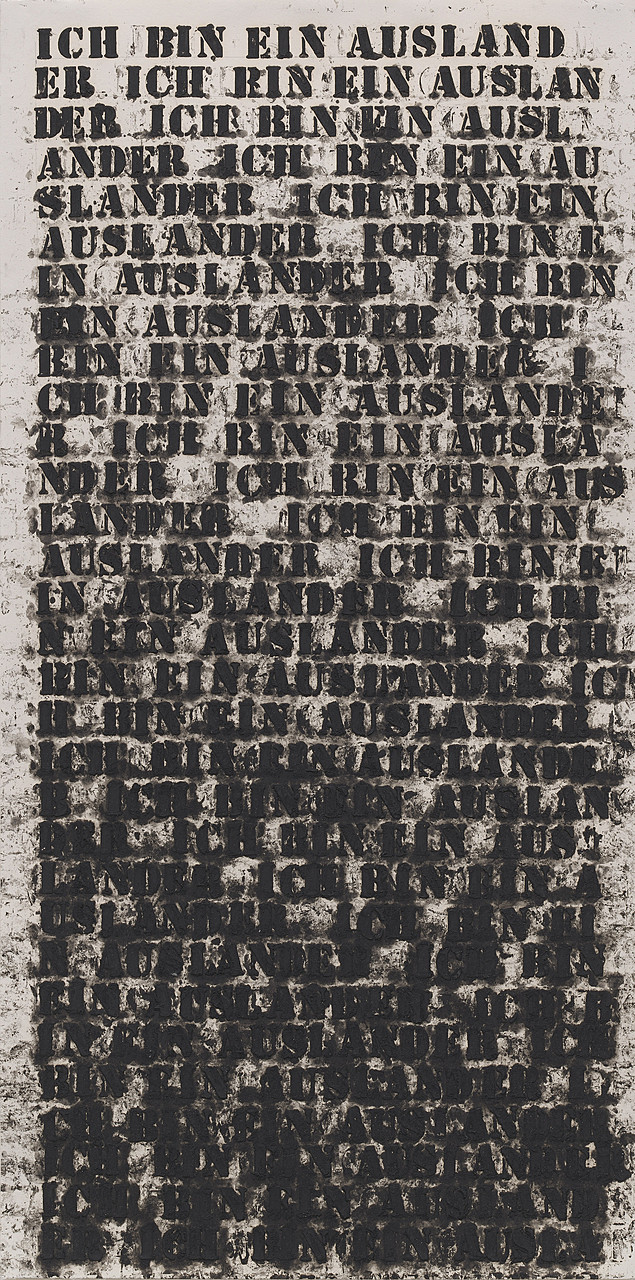 ICH BIN EIN AUSLAND
ER ICH BIN EIN AUSLAN
DER ICH BIN EIN AUSL
ANDER ICH BIN EIN AU
SLANDER ICH BIN EIN
AUSLANDER ICH BIN E
IN AUSLANDER ICH BIN
EIN AUSLANDER ICH
BIN EIN AUSLANDER I
CH BIN EIN AUSLANDE
R ICH BIN EIN AUSLA
NDER ICH BIN EIN AUS
LANDER ICH BIN EIN
AUSLANDER ICH BIN E
IN AUSLANDER ICH BI
N EIN AUSLANDER ICH
BIN EIN AUSLANDER IC
H BIN EIN AUSLANDER
ICH BIN EIN AUSLANDE
R ICH BIN EIN AUSLAN
DER ICH BIN EIN AUS
LANDER ICH BIN EIN A
USLANDER ICH BIN EI
N AUSLANDER ICH BIN
EIN AUSLANDER ICH B
IN EIN AUSLANDER ICH
BIN EIN AUSLANDER I
CH BIN EIN AUSLANDER
ICH BIN EIN AUSLANDER
ICH BIN EIN AUSLAND
ER ICH BIN EIN AUSLA